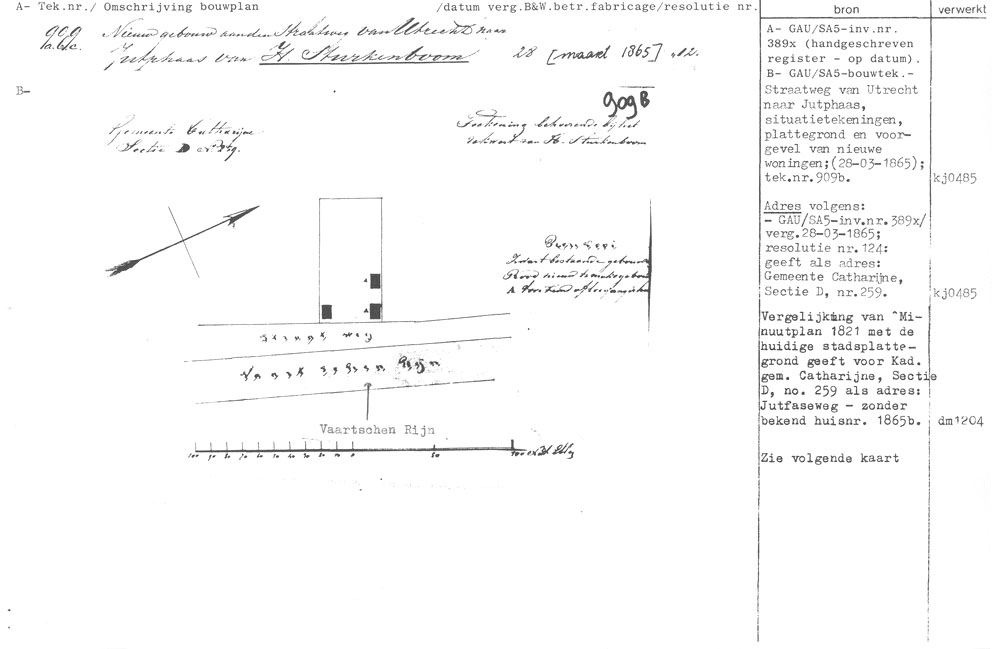 A- Tek.nr./ Omschrijving bouwplan /datum verg.B&W.betr.fabricage/resolutie nr.
909 Nieuw gebouw aan den Straatweg van Utrecht naar
a.b.c. Jutphaas van H. Sturkenboom 28 [maart 1865]
B-
909B
Gemeente Catharijne
Sectie D
Teekening behoorende bij het
van H. Sturkenboom
Zwart bestaande gebouwen
Rood nieuw te maken gebouw
A
A
A
Vaartschen Rijn
100 90 80 70 60 50 40 30 20 10 0 50 100
bron
A- GAU/SA5-inv.nr.
389x (handgeschreven
register - op datum).
B- GAU/SA5-bouwtek.-
Straatweg van Utrecht
naar Jutphaas,
situatietekeningen,
plattegrond en voor-
gevel van nieuwe
woningen;(28-03-1865);
tek.nr.909b.
Adres volgens:
- GAU/SA5-inv.nr.389x/
verg.28-03-1865;
resolutie nr.124:
geeft als adres:
Gemeente Catharijne,
Sectie D, nr.259.
Vergelijking van ^Mi-
nuutplan 1821 met de
huidige stadsplatte-
grond geeft voor Kad.
gem. Catharijne, Sectie
D, no. 259 als adres:
Jutfaseweg - zonder
bekend huisnr. 1865b.
Zie volgende kaart
verwerkt
kj0485
kj0485
dm1204